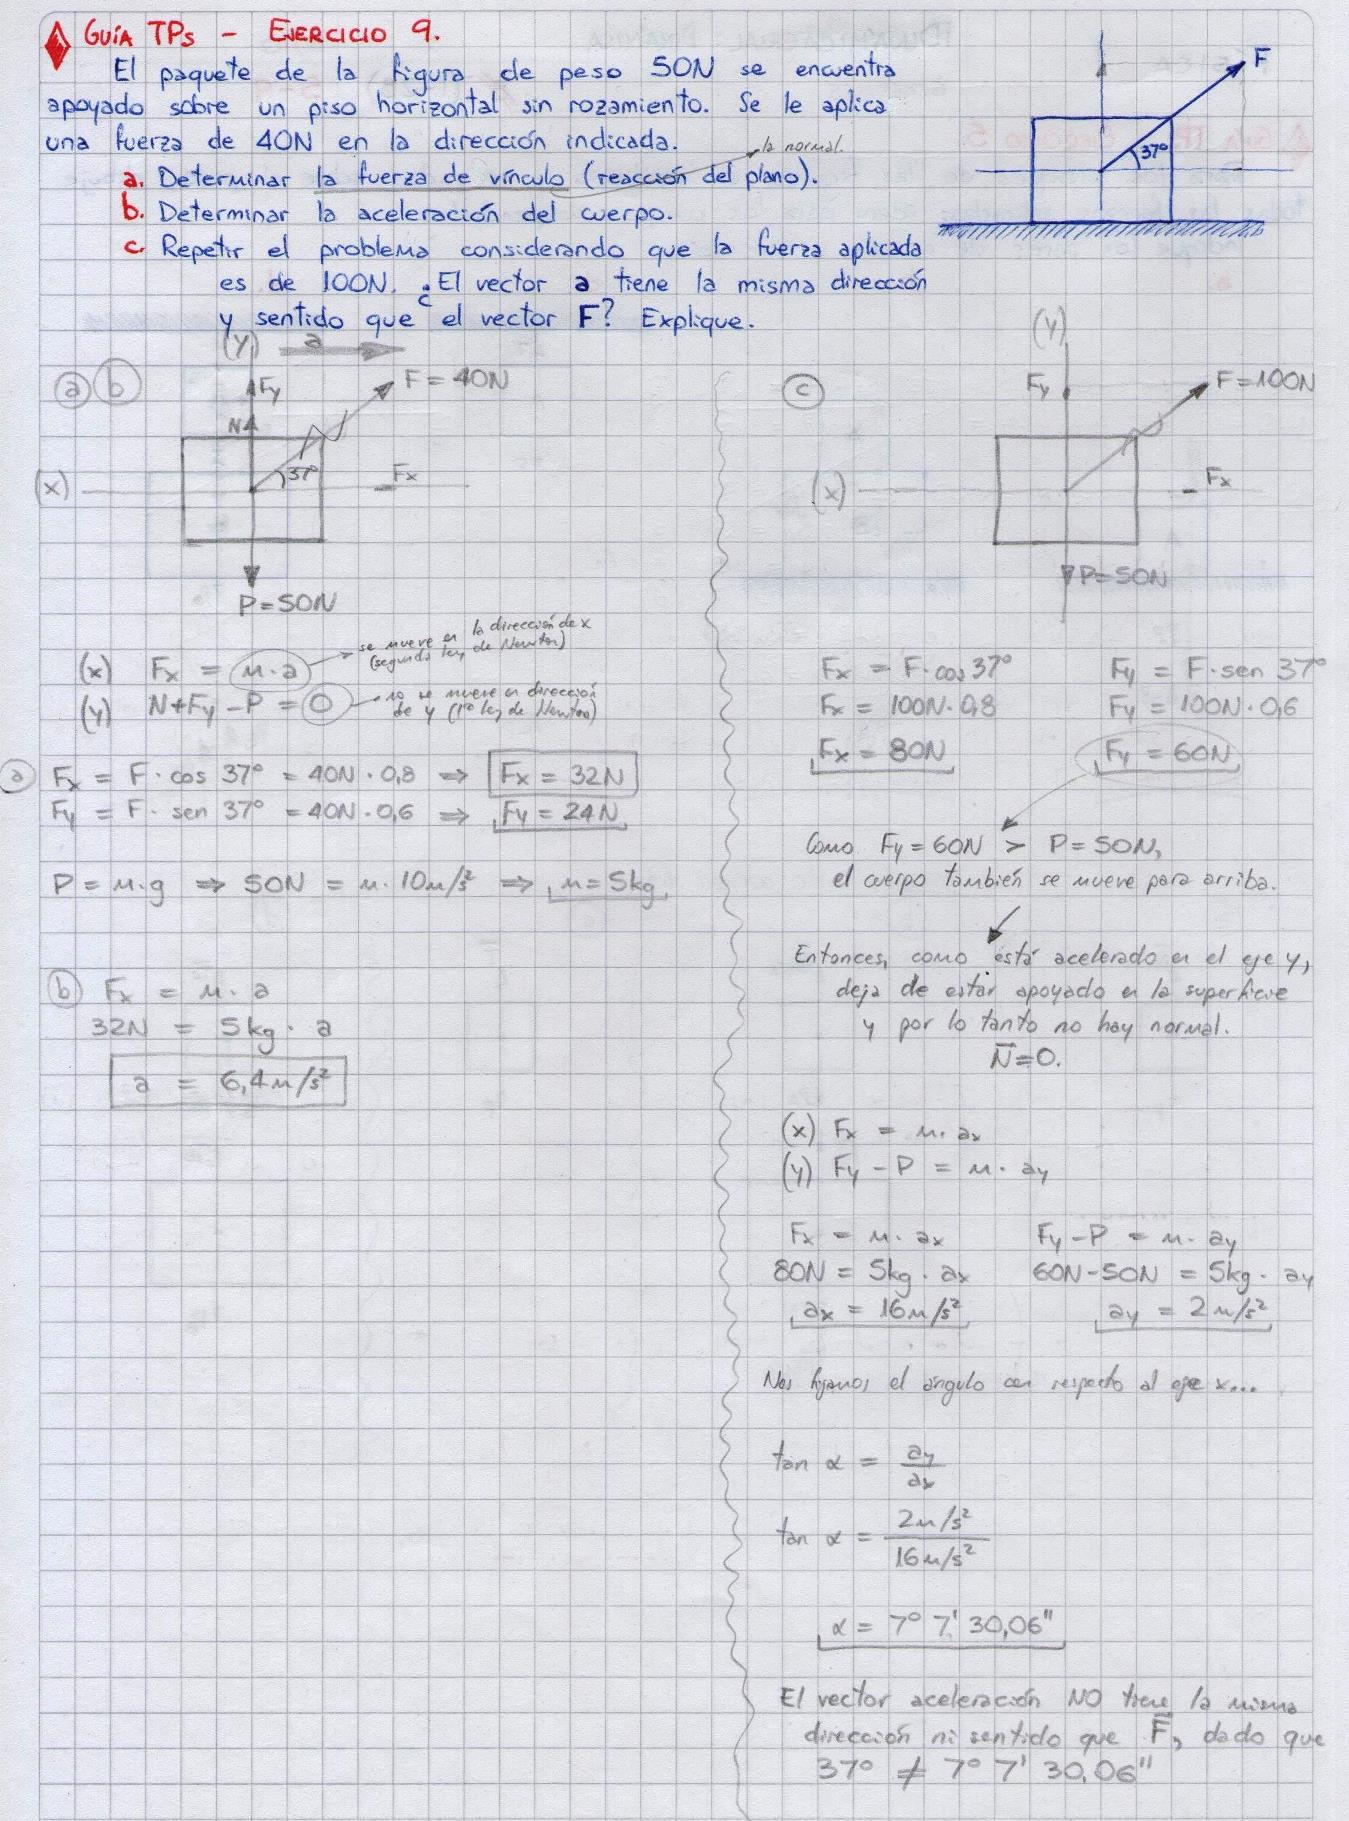 GUÍA TPs - EJERCICIO 9.
El paquete de la figura de peso 50N se encuentra
apoyado sobre un piso horizontal sin rozamiento. Se le aplica
una fuerza de 40N en la dirección indicada.
la normal.
a. Determinar la fuerza de vínculo (reacción del plano).
b. Determinar la aceleración del cuerpo.
c. Repetir el problema considerando que la fuerza aplicada
es de 100N. ¿El vector a tiene la misma dirección
y sentido que el vector F? Explique.
F
37°
a b
(y)
a
Fy
F = 40N
N
37°
(x)
Fx
P = 50N
se mueve en la dirección de x
(segunda ley de Newton)
(x) Fx = m·a
no se mueve en dirección
de y (1º ley de Newton)
(y) N+Fy-P = 0
a Fx = F·cos 37° = 40N·0,8 ⇒ Fx = 32N
Fy = F·sen 37° = 40N·0,6 ⇒ Fy = 24N
P = m·g ⇒ 50N = m·10m/s² ⇒ m = 5kg
b Fx = m·a
32N = 5kg·a
a = 6,4m/s²
c
(y)
Fy
F = 100N
(x)
Fx
P=50N
Fx = F·cos 37° Fy = F·sen 37°
Fx = 100N·0,8 Fy = 100N·0,6
Fx = 80N Fy = 60N
Como Fy = 60N > P = 50N,
el cuerpo también se mueve para arriba.
Entonces, como está acelerado en el eje y,
deja de estar apoyado en la superficie
y por lo tanto no hay normal.
N=0.
(x) Fx = m·ax
(y) Fy - P = m·ay
Fx = m·ax Fy-P = m·ay
80N = 5kg·ax 60N-50N = 5kg·ay
ax = 16m/s² ay = 2m/s²
Nos fijamos el ángulo con respecto al eje x...
tan α = ay/ax
tan α = 2m/s²/16m/s²
α = 7° 7' 30,06''
El vector aceleración NO tiene la misma
dirección ni sentido que F, dado que
37° ≠ 7° 7' 30,06''